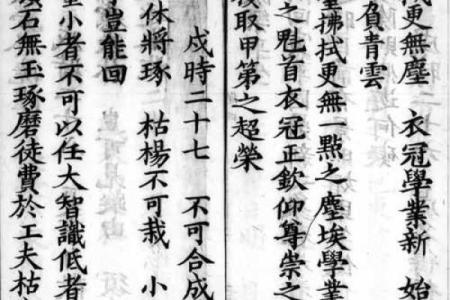 拭更無塵　衣冠學業新　始
負青雲
塵拂拭更無一點之塵埃學業
之魁首衣冠正欽仰尊崇之
取甲第之超榮
戍時二十七　不可合成
休將琢　枯楊不可栽　小
豈能回
量小者不可以任大智識低者
石無玉琢磨徒費於工夫枯